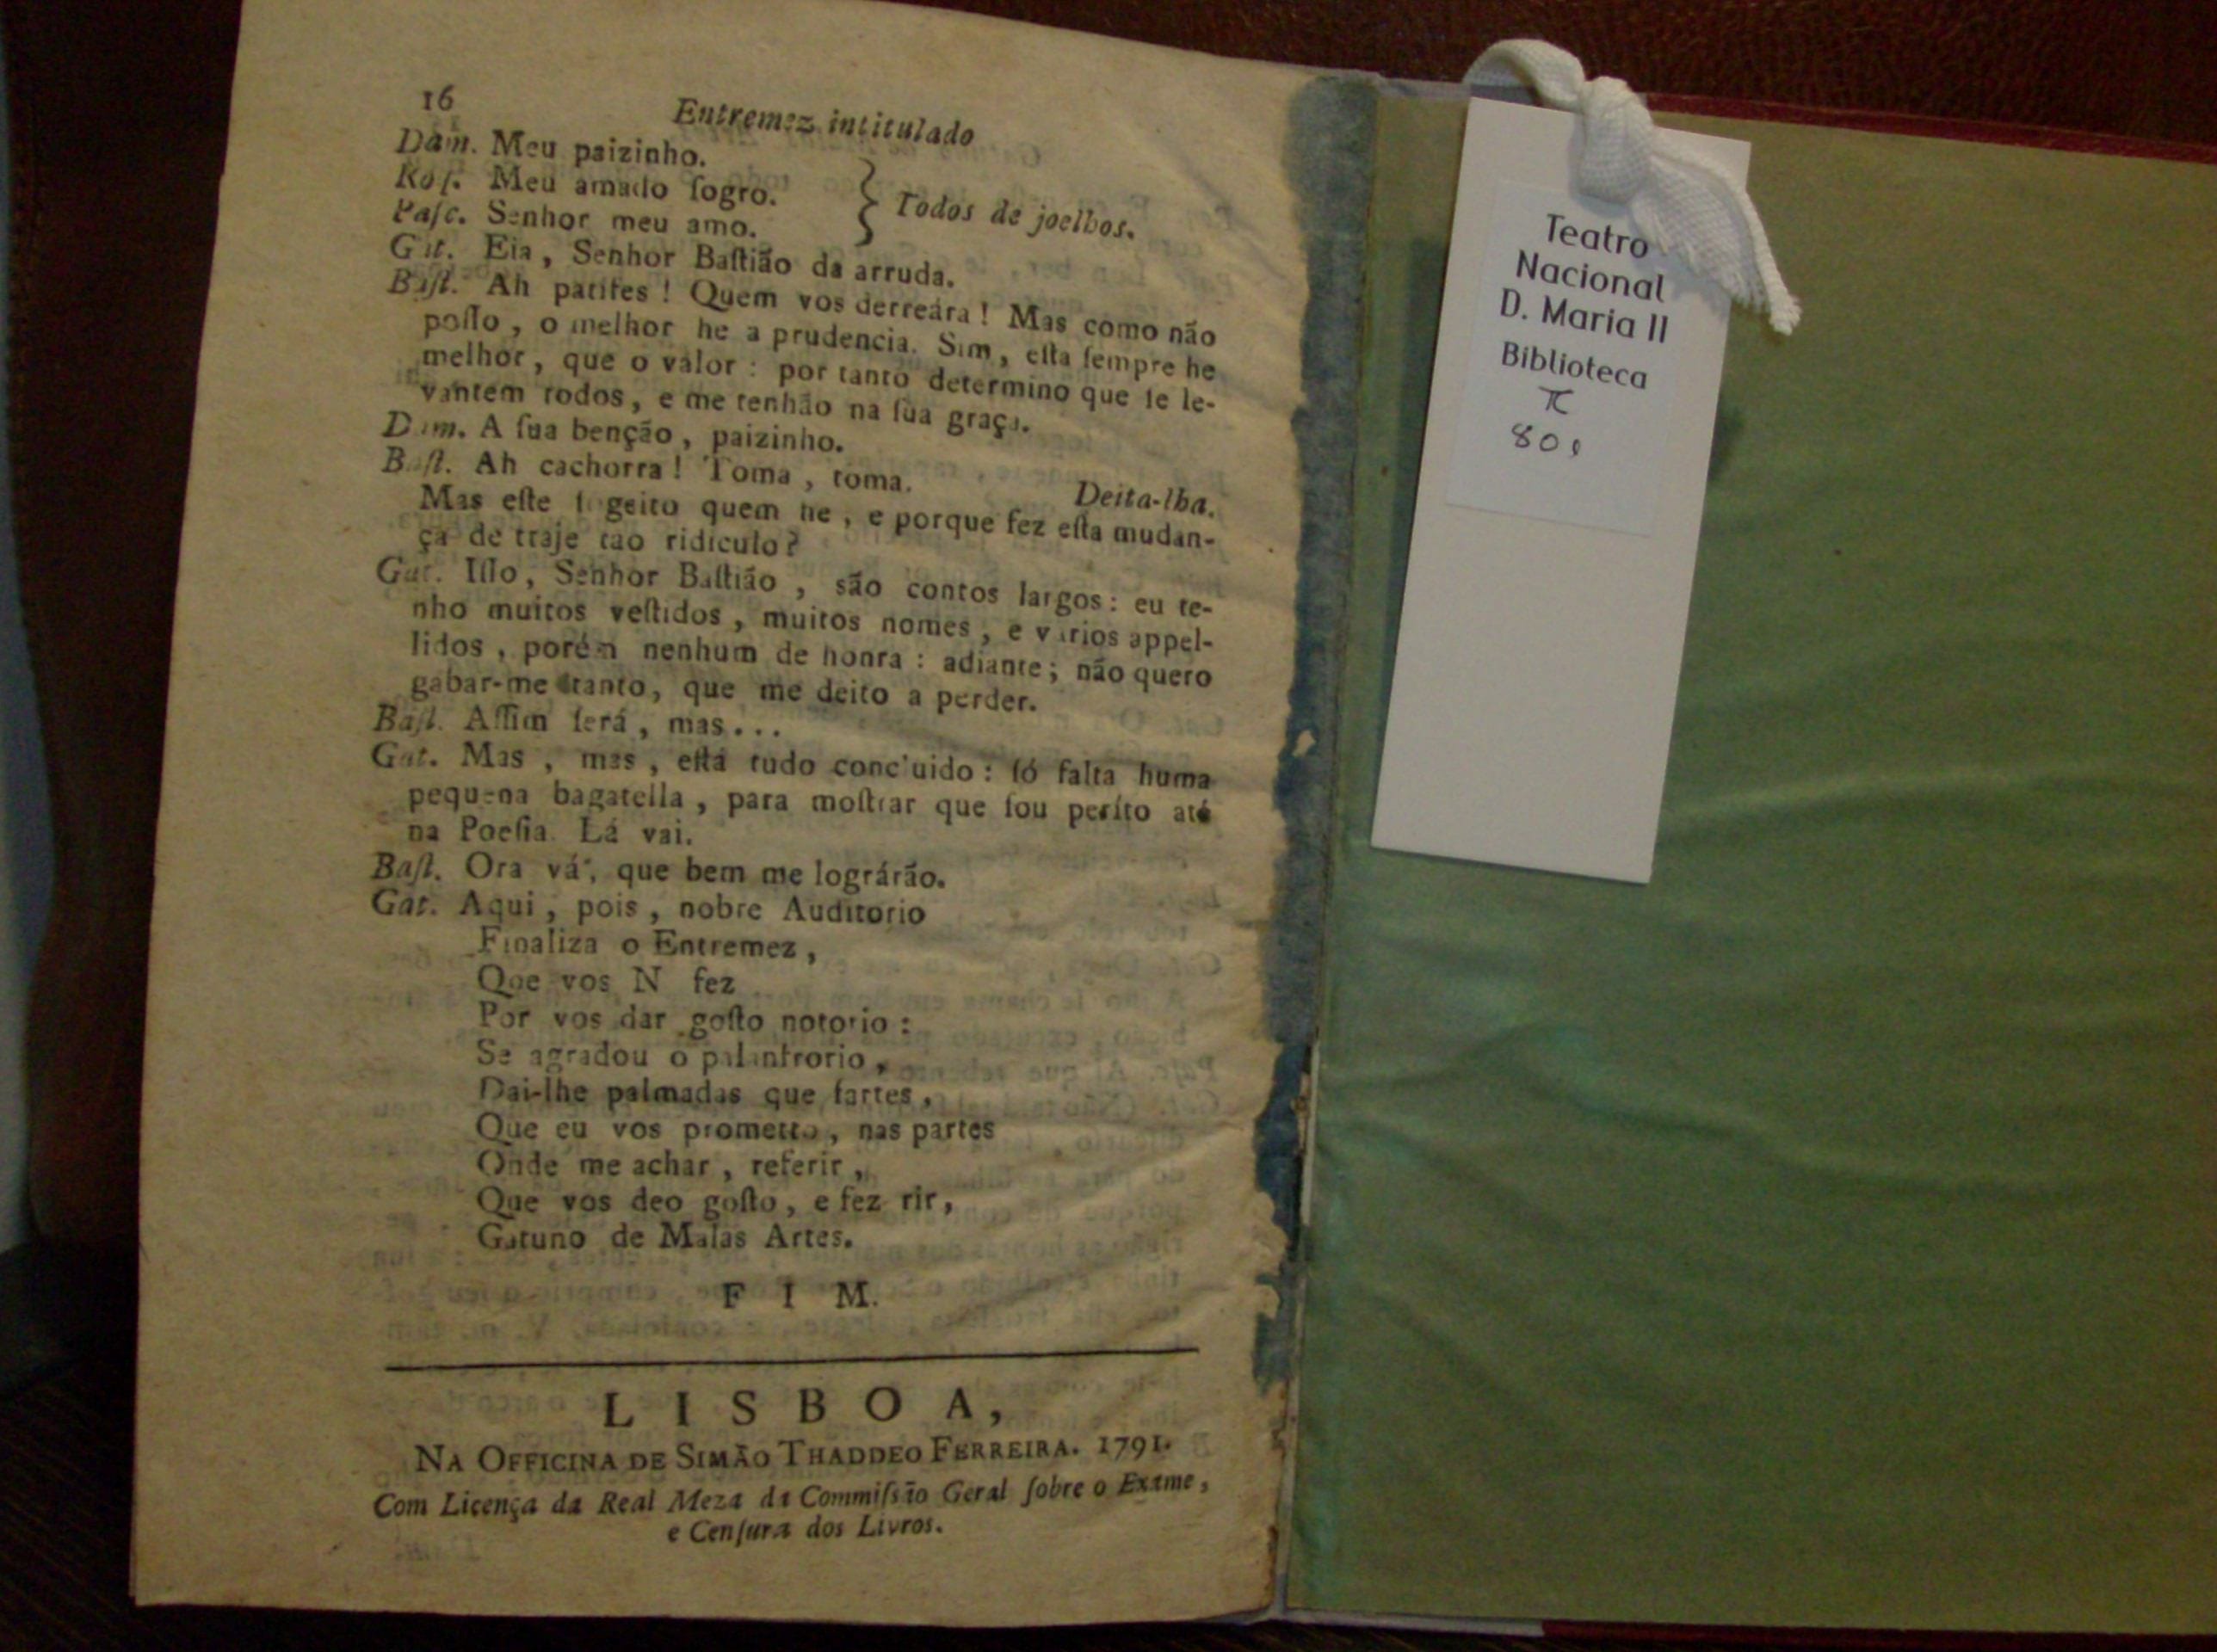 16
Entremez intitulado
Dam. Meu paizinho.
Roſ. Meu amado ſogro.
Paſc. Senhor meu amo.
Todos de joelhos.
Gat. Eia, Senhor Baſtião da arruda.
Baſt. Ah patifes! Quem vos derreára! Mas como não
poſſo, o melhor he a prudencia. Sim, eſta ſempre he
melhor, que o valor: por tanto determino que ſe le-
vantem todos, e me tenhão na ſua graça.
Dam. A ſua benção, paizinho.
Baſt. Ah cachorra! Toma, toma.
Deita-lha.
Mas eſte ſogeito quem he, e porque fez eſta mudan-
ça de traje tao ridiculo?
Gat. Iſſo, Senhor Baſtião, são contos largos: eu te-
nho muitos veſtidos, muitos nomes, e varios appel-
lidos, porém nenhum de honra: adiante; não quero
gabar-me tanto, que me deito a perder.
Baſt. Aſſim ſerá, mas...
Gat. Mas, mas, eſtá tudo concluido: ſó falta huma
pequena bagatella, para moſtrar que ſou períto até
na Poeſia. Lá vai.
Baſt. Ora vá, que bem me lográrão.
Gat. Aqui, pois, nobre Auditorio
Finaliza o Entremez,
Que vos N fez
Por vos dar goſto notorio:
Se agradou o palanfrorio,
Dai-lhe palmadas que fartes,
Que eu vos prometto, nas partes
Onde me achar, referir,
Que vos deo goſto, e fez rir,
Gatuno de Malas Artes.
F I M.
LISBOA,
NA OFFICINA DE SIMÃO THADDEO FERREIRA. 1791.
Com Licença da Real Meza da Commiſsão Geral ſobre o Exame,
e Cenſura dos Livros.
Teatro
Nacional
D. Maria II
Biblioteca
π
80